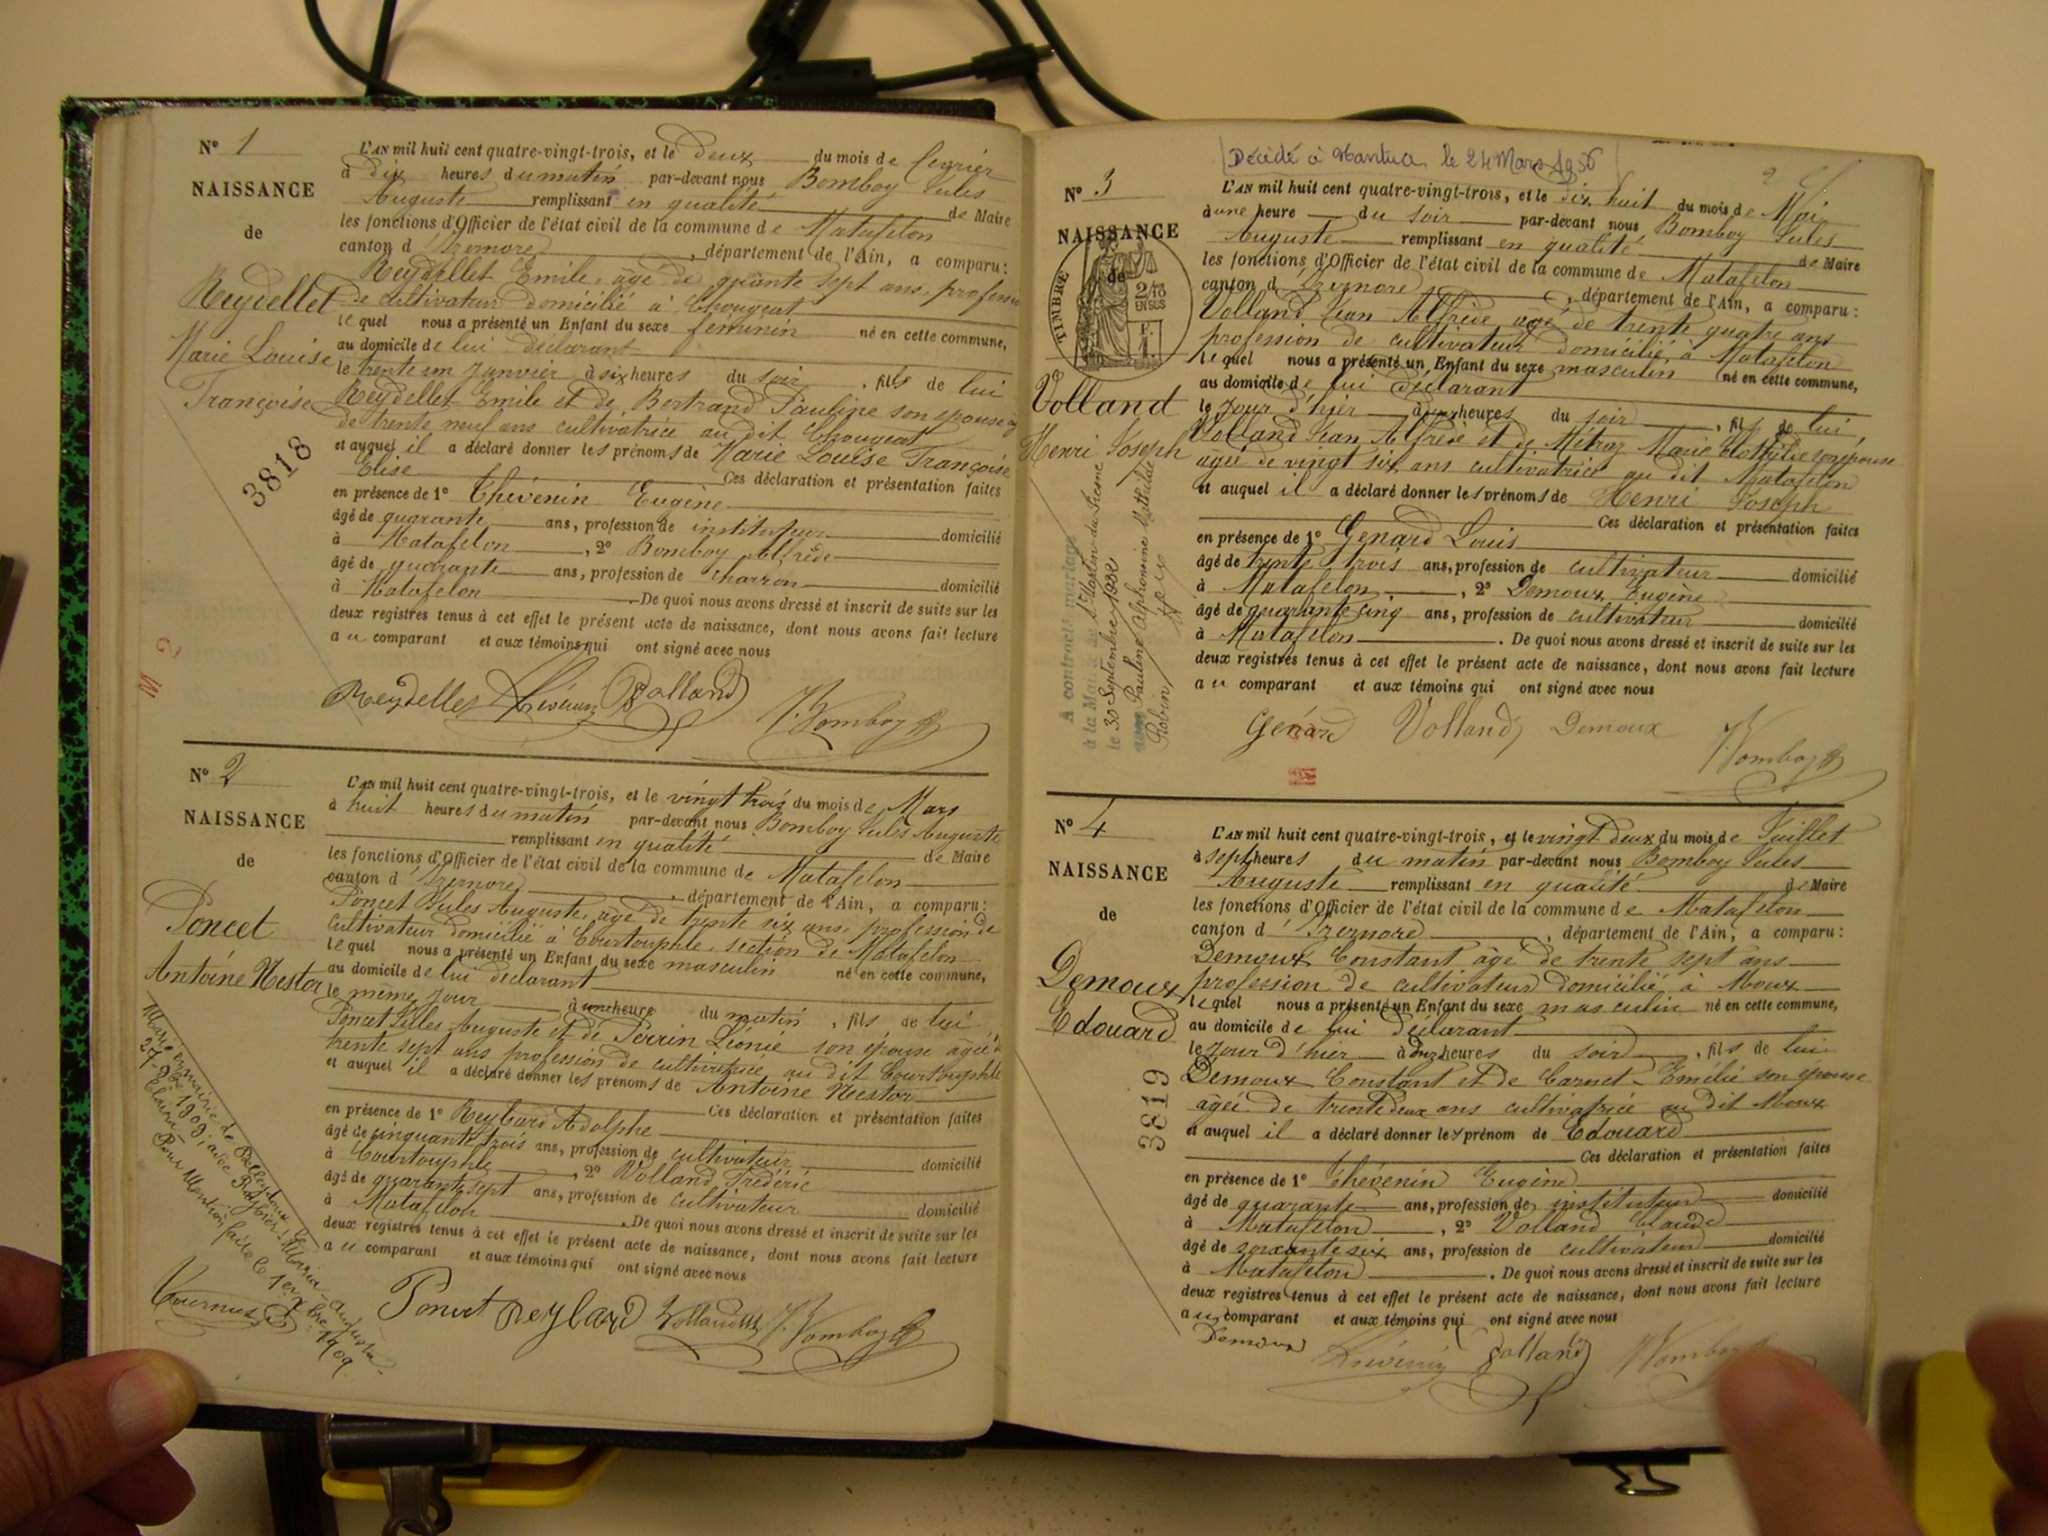 N° 1
NAISSANCE
de
Reydellet
Marie Louise
Françoise
3818
L'AN mil huit cent quatre-vingt-trois, et le deux du mois de Fevrier
à dix heures du matin par-devant nous Bomboy Jules
Auguste remplissant en qualité de Maire
les fonctions d'Officier de l'état civil de la commune de Matafelon
canton d'Izernore, département de l'Ain, a comparu:
Reydellet Emile, âgé de quante sept ans, professi
de cultivateur domicilié à Chougeat
lequel nous a présenté un Enfant du sexe féminin né en cette commune,
au domicile de lui déclarant
le trente un Janvier à six heures du soir, fils de lui
Reydellet Emile et de Bertrand Pauline son epouse
de trente neuf ans cultivatrice au dit Chougeat
et auquel il a déclaré donner les prénoms de Marie Louise Françoise
Elise Ces déclaration et présentation faites
en présence de 1° Thévenin Eugène
âgé de quarante ans, profession de instituteur domicilié
à Matafelon, 2° Bomboy Alfrède
âgé de quarante ans, profession de charron domicilié
à Matafelon. De quoi nous avons dressé et inscrit de suite sur les
deux registres tenus à cet effet le présent acte de naissance, dont nous avons fait lecture
au comparant et aux témoins qui ont signé avec nous
Reydellet Thévenin J. Bomboy
N° 2
NAISSANCE
de
Poncet
Antoine Nestor
L'AN mil huit cent quatre-vingt-trois, et le vingt trois du mois de Mars
à huit heures du matin par-devant nous Bomboy Jules Auguste
remplissant en qualité de Maire
les fonctions d'Officier de l'état civil de la commune de Matafelon
canton d'Izernore, département de l'Ain, a comparu:
Poncet Jules Auguste, âgé de trente six ans, profession de
cultivateur domicilié à Courtouphle, section de Matafelon
lequel nous a présenté un Enfant du sexe masculin né en cette commune,
au domicile de lui déclarant
le même jour à une heure du matin, fils de lui
Poncet Jules Auguste et de Perrin Léonie son épouse âgée
trente sept ans profession de cultivatrice au dit Courtouphle
et auquel il a déclaré donner les prénoms de Antoine Nestor
Ces déclaration et présentation faites
en présence de 1° Reybard Adolphe
âgé de cinquante trois ans, profession de cultivateur domicilié
à Courtouphle, 2° Volland Frédéric
âgé de quarante sept ans, profession de cultivateur domicilié
à Matafelon. De quoi nous avons dressé et inscrit de suite sur les
deux registres tenus à cet effet le présent acte de naissance, dont nous avons fait lecture
au comparant et aux témoins qui ont signé avec nous
Marié en mairie de Belleydoux le
27 9bre 1909, avec Maria Augusta
Pour Mention faite le 1er Xbre 1909
Poncet Reybard Volland J. Bomboy
Décédé à Nantua le 24 Mars 1956
N° 3
NAISSANCE
de
TIMBRE
2/10 EN SUS
Volland
Henri Joseph
A contracté mariage
à la Mairie de St Martin-du-Fresne
le 30 Septembre 1922
avec Pauline Alphonsine Mathilde
Robin
L'AN mil huit cent quatre-vingt-trois, et le dix huit du mois de Mai
à une heure du soir par-devant nous Bomboy Jules
Auguste remplissant en qualité de Maire
les fonctions d'Officier de l'état civil de la commune de Matafelon
canton d'Izernore, département de l'Ain, a comparu:
Volland Jean Alfrède agé de trente quatre ans
profession de cultivateur domicilié à Matafelon
lequel nous a présenté un Enfant du sexe masculin né en cette commune,
au domicile de lui déclarant
le jour d'hier à heures du soir, fils de lui
Volland Jean Alfrède et de Mitraz Marie Clothylde son épouse
agée de vingt six ans cultivatrice au dit Matafelon
et auquel il a déclaré donner les prénoms de Henri Joseph
Ces déclaration et présentation faites
en présence de 1° Genard Louis
âgé de trente trois ans, profession de cultivateur domicilié
à Matafelon, 2° Demoux Eugène
âgé de quarante cinq ans, profession de cultivateur domicilié
à Matafelon. De quoi nous avons dressé et inscrit de suite sur les
deux registres tenus à cet effet le présent acte de naissance, dont nous avons fait lecture
au comparant et aux témoins qui ont signé avec nous
Génard Volland Demoux J. Bomboy
N° 4
NAISSANCE
de
Demoux
Edouard
3819
L'AN mil huit cent quatre-vingt-trois, et le vingt deux du mois de Juillet
à sept heures du matin par-devant nous Bomboy Jules
Auguste remplissant en qualité de Maire
les fonctions d'Officier de l'état civil de la commune de Matafelon
canton d'Izernore, département de l'Ain, a comparu:
Demoux Constant âgé de trente sept ans
profession de cultivateur domicilié à Moux
lequel nous a présenté un Enfant du sexe masculin né en cette commune,
au domicile de lui déclarant
le jour d'hier à onze heures du soir, fils de lui
Demoux Constant et de Carnet Emélie son epouse
âgée de trente deux ans cultivatrice au dit Moux
et auquel il a déclaré donner le prénom de Edouard
Ces déclaration et présentation faites
en présence de 1° Thévenin Eugène
âgé de quarante ans, profession de instituteur domicilié
à Matafelon, 2° Volland Claude
âgé de soixante six ans, profession de cultivateur domicilié
à Matafelon. De quoi nous avons dressé et inscrit de suite sur les
deux registres tenus à cet effet le présent acte de naissance, dont nous avons fait lecture
au comparant et aux témoins qui ont signé avec nous
Demoux Thévenin Volland J. Bomboy